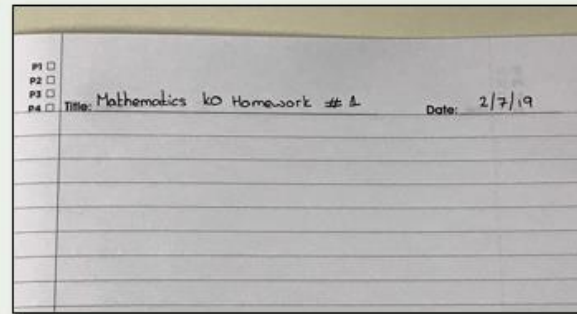 P1 □
P2 □
P3 □
P4 □ Title: Mathematics KO Homework # 1 Date: 2/7/19